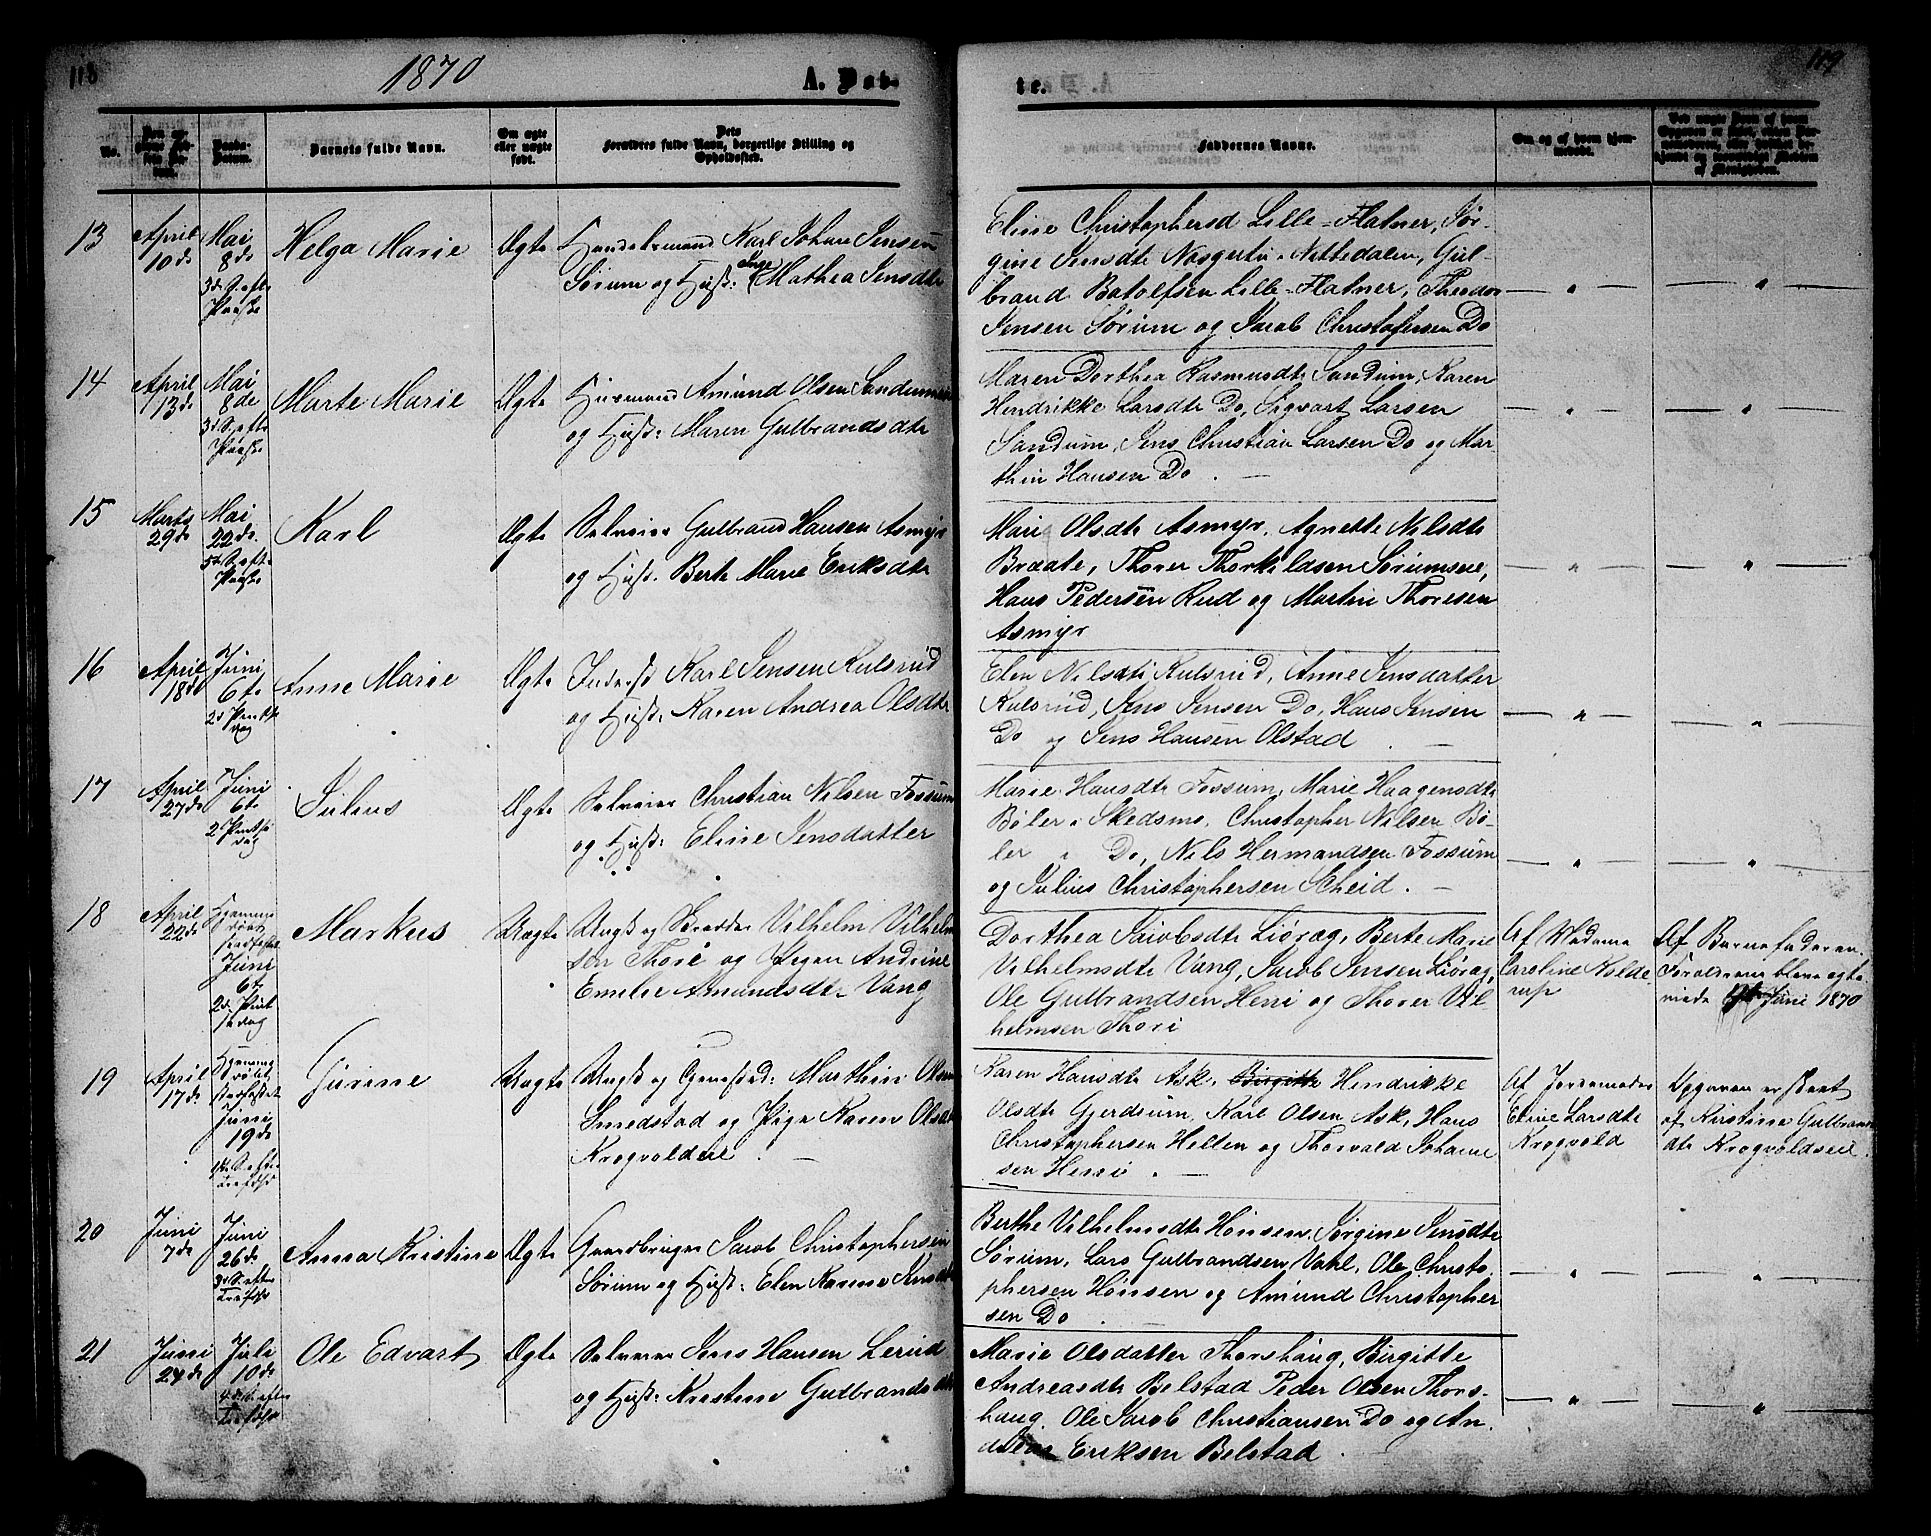 118
1870
A. Døb-
te.
119
No.
Barnets fulde Navn.
Om ægte
eller uægte
født.
Forældres fulde Navn, borgerlige Stilling og
Opholdssted.
Faddernes Navne.
Om og af hvem hjem-
medøbt.
13
April
10de
Mai
8de
3d S. efter
Paaske
Helga Marie
Ægte
Handelsmand Karl Johan Jensen
Sørum og Hust: Inge Mathea Jensdtr
Eline Christophersd Lille-Flatner, Jør-
gine Jensdtr Nittedalen, Gul-
brand Batolfsen Lille-Flatner, Theodor
Jensen Sørum og Jacob Christofersen Do
14
April
13de
Mai
8de
3d S. efter
Paaske
Marte Marie
Ægte
Husmand Amund Olsen
og Hust: Maren Gulbrandsdtr
Maren Dorthea Rasmusdtr Sandum, Karen
Hendrikke Larsdtr Do, Sigvart Larsen
Sandum, Jens Christian Larsen Do og Mar-
thin Hansen Do.
15
Marts
29de
Mai
22de
5te S. eft.
Paaske
Karl
Ægte
Selveier Gulbrand Hansen Asmyr
og Hust. Berte Marie Eriksdtr
Mari Olsdtr Asmyr, Agnette Nilsdtr
Braate, Thorer Thorkildsen Sørumseie,
Hans Pedersen Rud og Martin Thoresen
Asmyr
16
April
18de
Juni
6te
2d Pintse
dag
Anne Marie
Ægte
Inderst Karl Jensen Kulsrud
og Hust: Karen Andrea Olsdtr
Elen Nilsdtr Kulsrud, Anne Jensdatter
Kulsrud, Jens Jensen Do, Hans Jensen
Do og Jens Hansen Olstad.
17
April
27de
Juni
6te
2d Pintse
dag
Julius
Ægte
Selveier Christian Nilsen Fossum
og Hust: Eline Jensdatter
Marie Hansdtr Fossum, Marie Haagensdtr
Bøler i Skedsmo, Christopher Nilsen Bø-
ler i Do, Nils Hermandsen Fossum
og Julius Christophersen Scheid.
18
April
22de
Hjemme
døbt
stadfæstet
Juni
6te
2d Pint
sedag
Markus
Uægte
Ungk og Skrædder Vilhelm Vilhelm
sen Thori og Pigen Andrine
Emilie Amundsdtr Vang
Dorthea Jacobsdtr Liøræg, Berte Marie
Vilhelmsdtr Vang, Jacob Jensen Liøræg,
Ole Gulbrandsen Herri og Thorer Vil-
helmsen Thori
Af Madame
Caroline Holde
rup
Af Barnefaderen.
Forældrene bleve ægte-
viede Juni 1870
19
April
17de
Hjemme
døbt
stadfæstet
Juni
19de
Gurine
Uægte
Ungk og Marthin Olsen
Smedstad og Pige Karen Olsdtr
Krogvoldeie.
Karen Hansdtr Ask, Birgitte Hendrikke
Olsdtr Gjerdrum, Karl Olsen Ask, Hans
Christophersen Hellen og Thorvald Johanne
sen Herri.
Af Jordemoder
Eline Larsdtr
Krogvold
Opgaven er skeet
af Kirstine Gulbrands
dtr Krogvoldseie.
20
Juni
7de
Juni
26de
2d S. efter
Trefold.
Anna Kristine
Ægte
Gaardbruger Jacob Christophersen
Sørum og Hust: Elen Karine Jensdtr
Berthe Vilhelmsdtr Hønsen, Jørgine Jensdtr
Sørum, Lars Gulbrandsen Vahl, Ole Christo-
phersen Hønsen og Amund Christopher
sen Do.
21
Juni
24de
Juli
10de
4de S. efter
Trefold.
Ole Edvart
Ægte
Selveier Jens Hansen Lerud
og Hust: Kristine Gulbrandsdtr
Marie Olsdatter Thorshaug, Birgitte
Andreasdtr Belstad Peder Olsen Thors-
haug. Ole Jacob Christiansen Do og An-
dreas Eriksen Belstad.